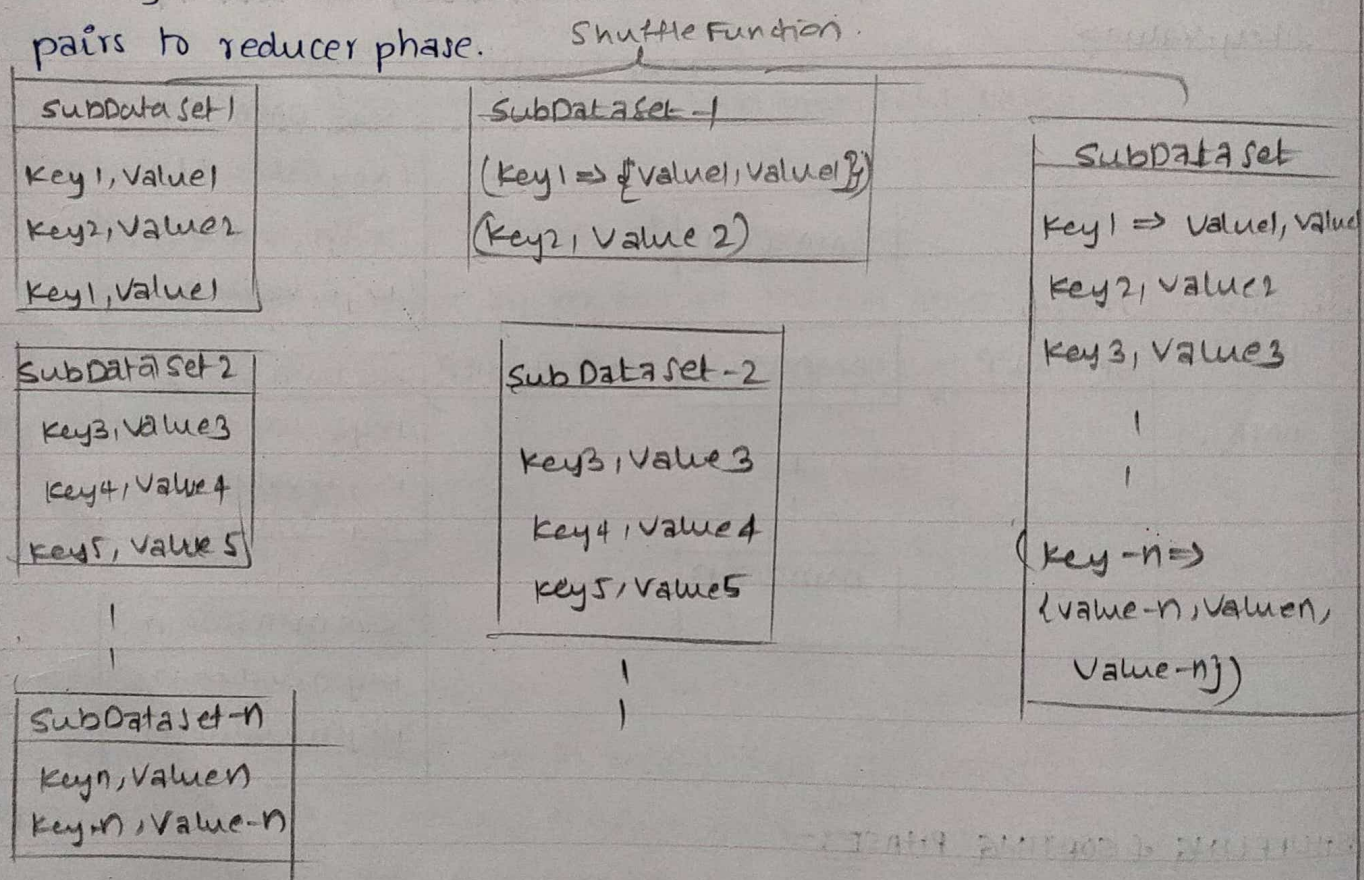 pairs to reducer phase.
Shuffle Function.
SubDataSet1
Key1, Value1
Key2, Value2
Key1, Value1
SubDataSet2
Key3, Value3
Key4, Value4
Key5, Value5
SubDataSet-n
Keyn, Valuen
Key-n, Value-n
SubDataSet-1
(Key1 => {Value1, Value1})
(Key2, Value 2)
SubDataSet-2
Key3, Value 3
Key4, Value4
Key5, Value5
SubDataSet
Key1 => Value1, Value
Key2, Value2
Key3, Value3
(Key-n =>
{Value-n, Valuen,
Value-n})